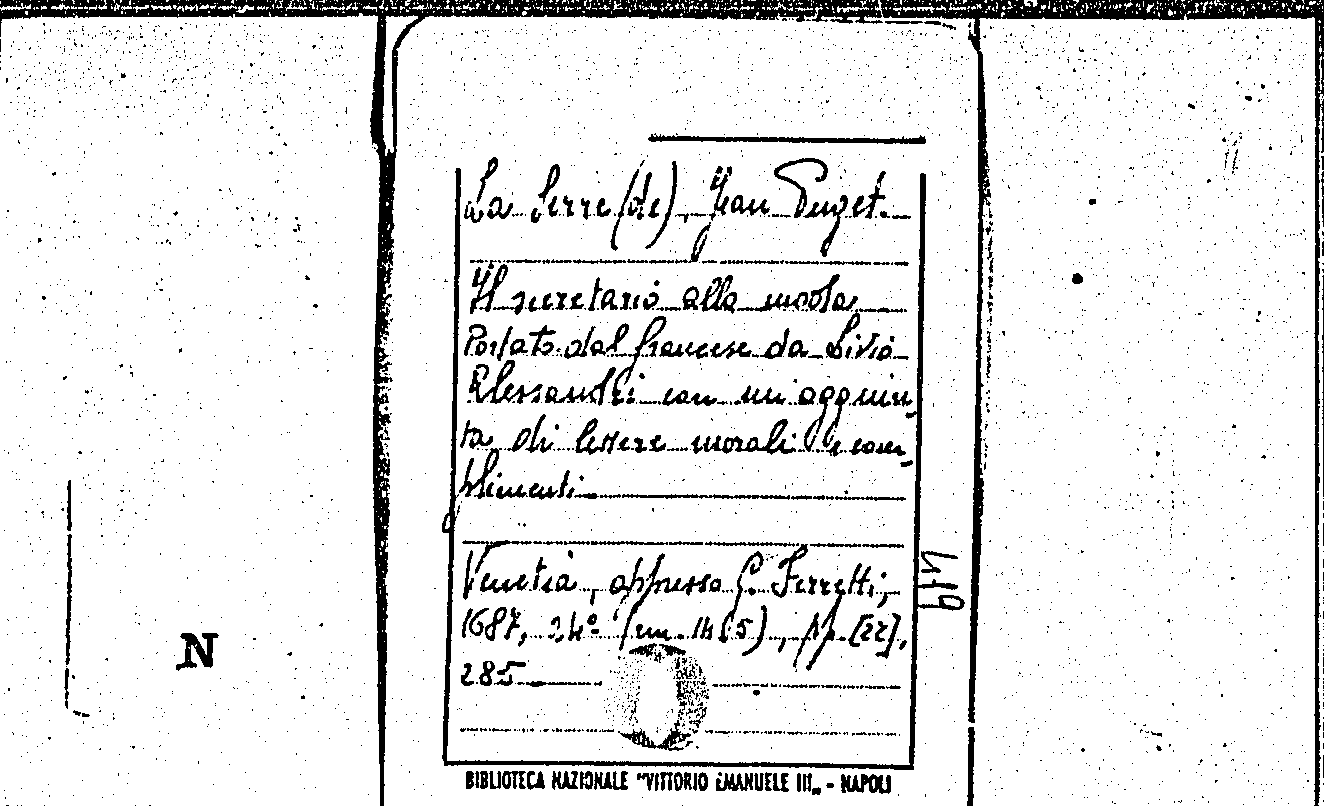 La Serre (de), Jean Puget.
Il secretario alla moda
Portato dal francese da Livio
Alessandri con un'aggiun-
ta di lettere morali e com-
plimenti
Venetia, appresso G. Ferretti,
1687, 24° (cm. 14.5), pp. [22],
285
419
N
BIBLIOTECA NAZIONALE "VITTORIO EMANUELE III" - NAPOLI